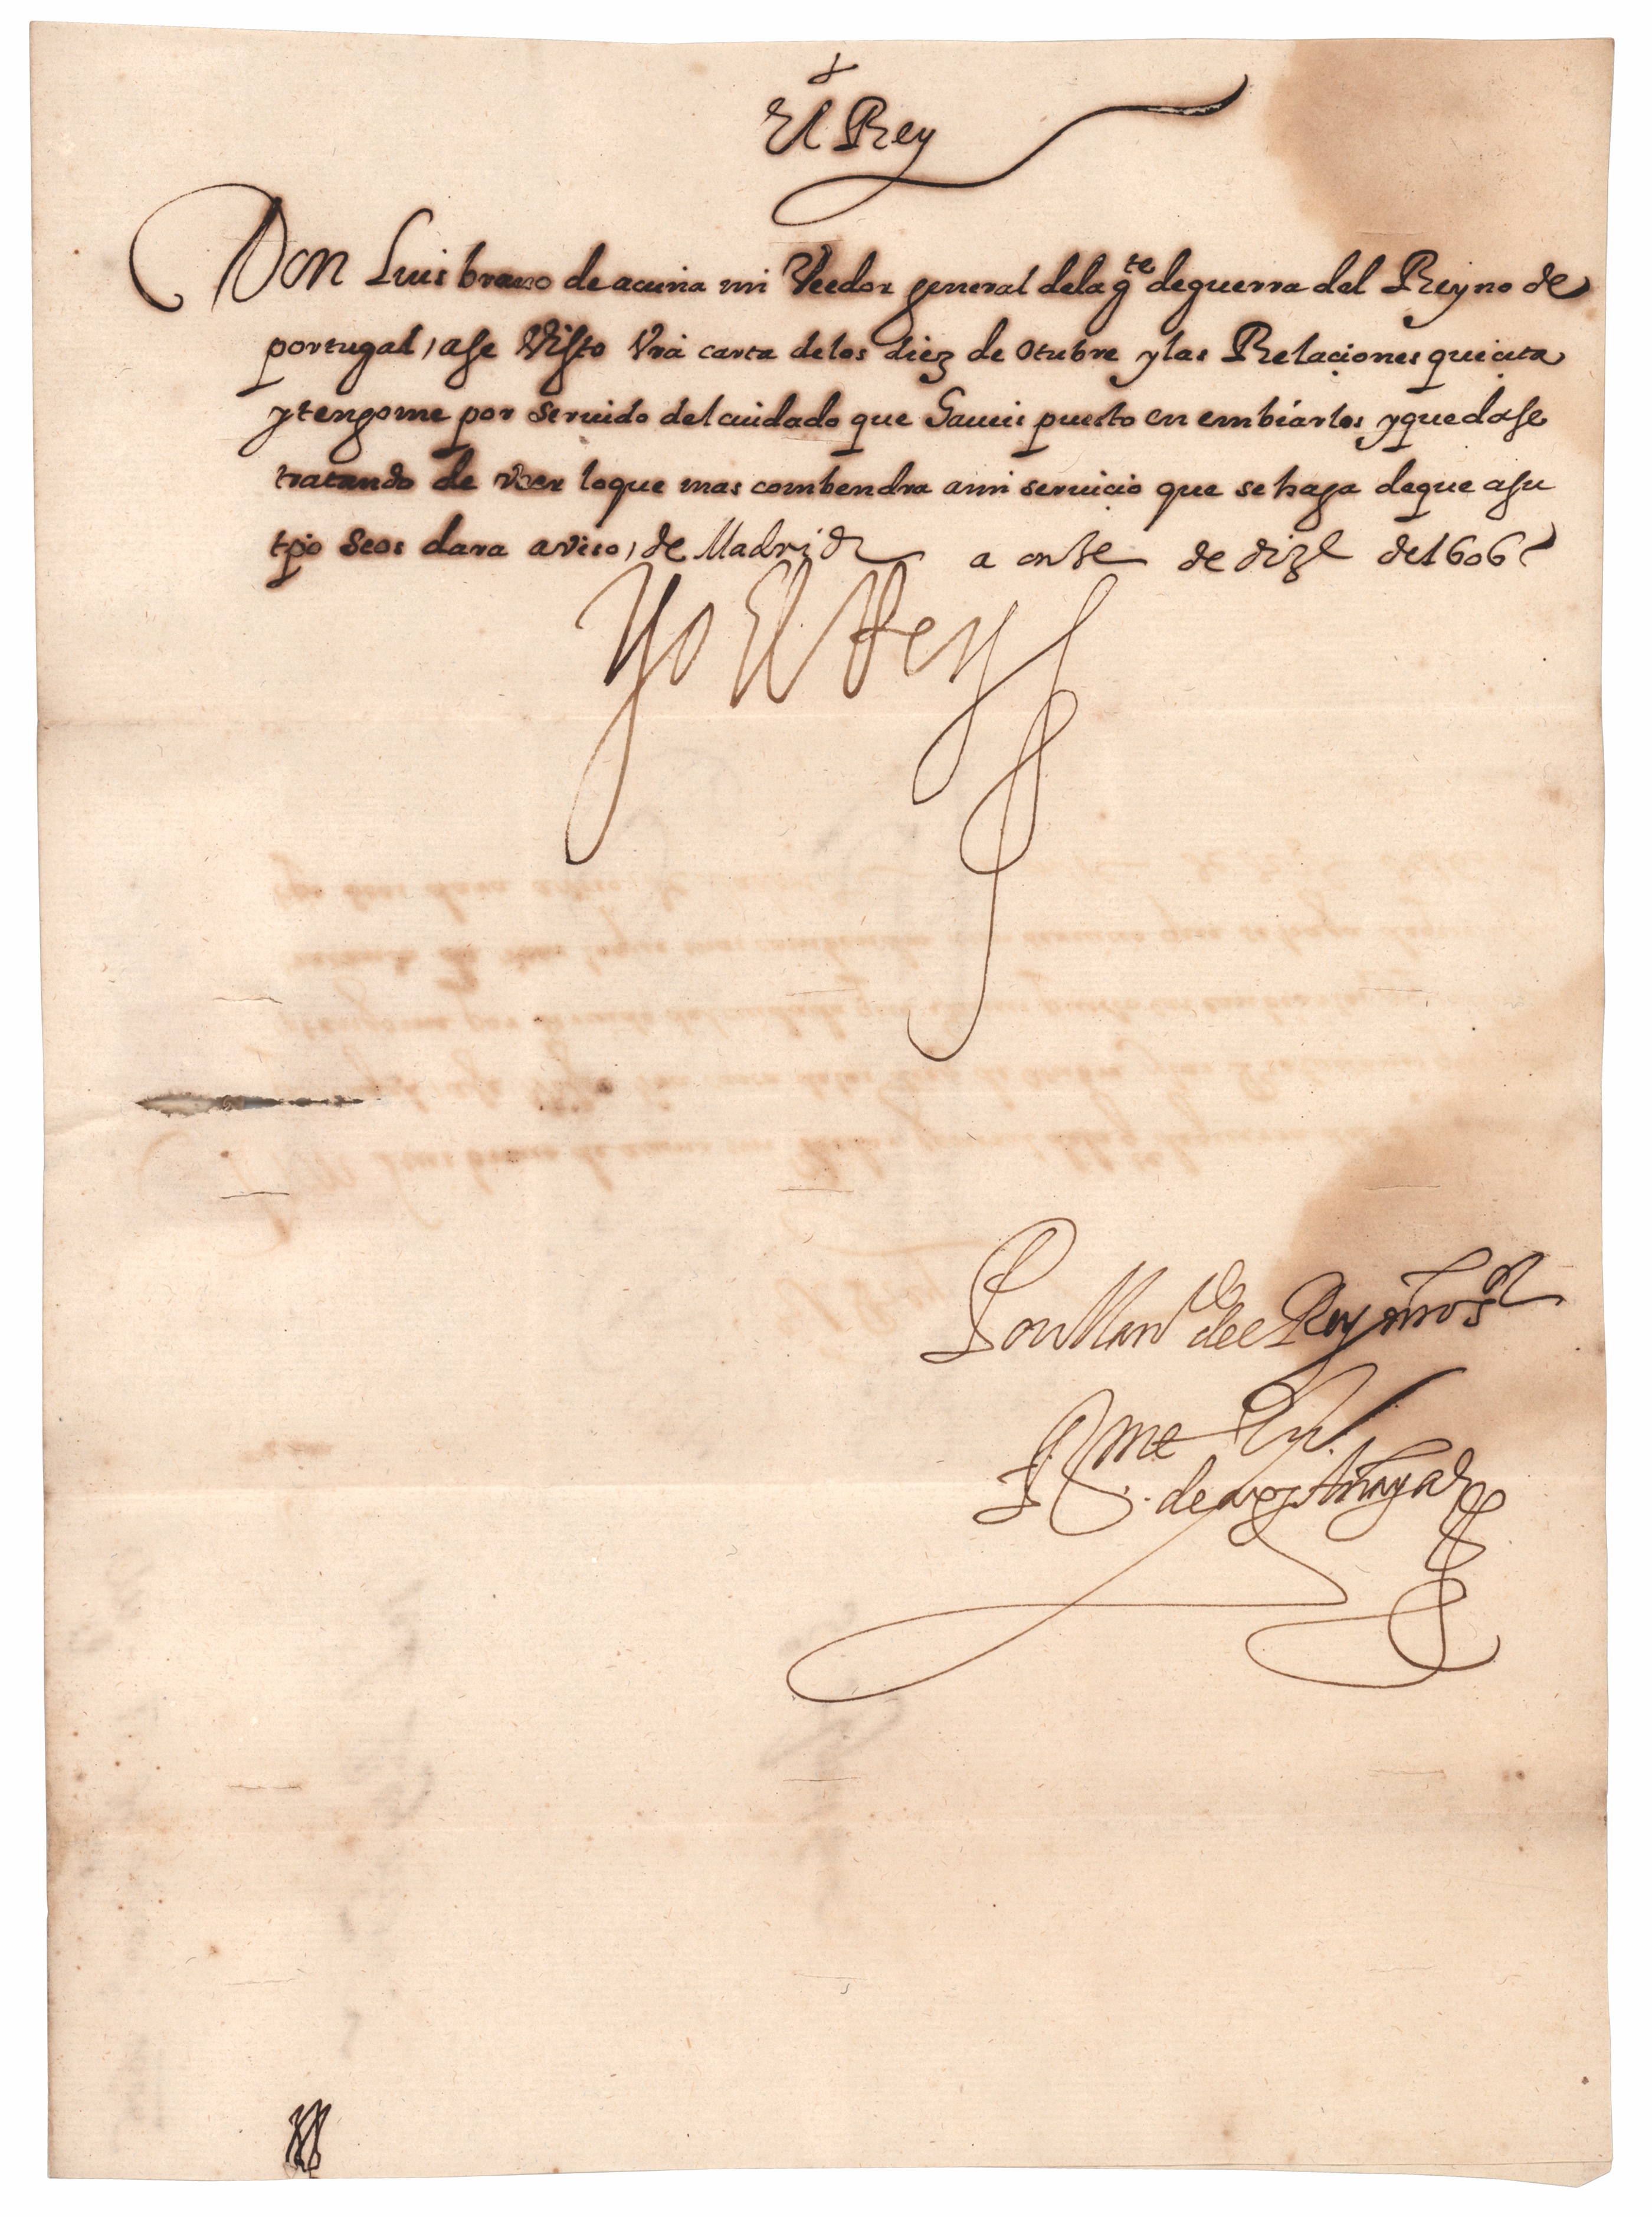 El Rey
Don Luis bravo de acuña mi Veedor general dela gte deguerra del Reyno de
portugal, ase Visto Vrā carta delos diez de Otubre ylas Relaçiones que çita
ytengome por seruido delcuidado que haueis puesto en embiarlos yquedase
tratando de ver loque mas combendra ami seruicio que sehaga deque asu
tpo seos dara aviso, de Madrid a onse de dize de1606
Yo El Rey